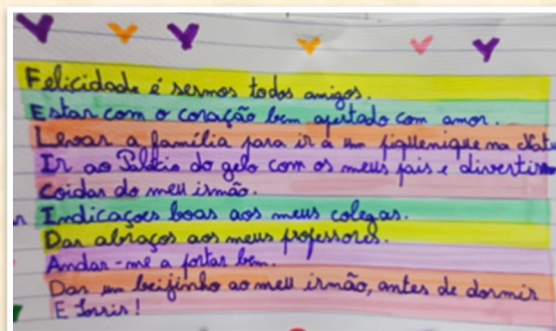 Felicidade é sermos todos amigos.
Estar com o coração bem apertado com amor.
Levar a família para ir a um piquenique na
Ir ao Palácio do gelo com os meus pais e
Coidar do meu irmão.
Indicaçoes boas aos meus colegas.
Dar abraços aos meus professores.
Andar-me a portar bem.
Dar um beijinho ao meu irmão, antes de dormir
E Sorrir!